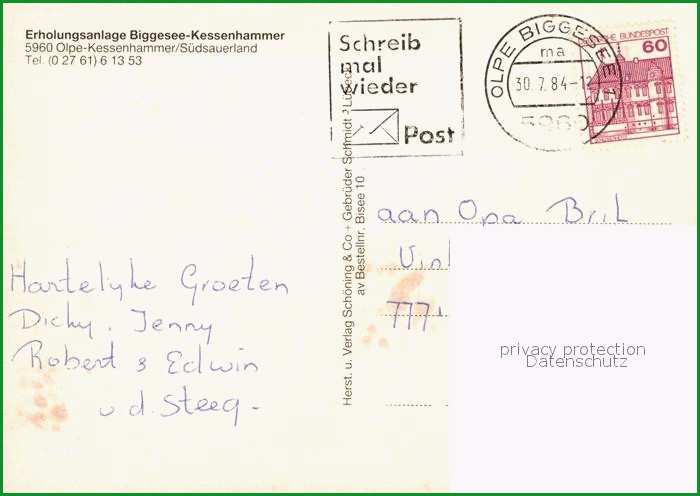 Erholungsanlage Biggesee-Kessenhammer
5960 Olpe-Kessenhammer/Südsauerland
Tel. (0 27 61) 6 13 53
Schreib
mal
wieder
Post
OLPE BIGGESEE 1
ma
30.7.84-12
5960
DEUTSCHE BUNDESPOST
60
Herst. u. Verlag Schöning & Co + Gebrüder Schmidt · Lübeck
av Bestellnr. Bisee 10
aan Opa Bril
777
Hartelyke Groeten
Dicky, Jenny
Robert & Edwin
v d. Steeg -
privacy protection
Datenschutz